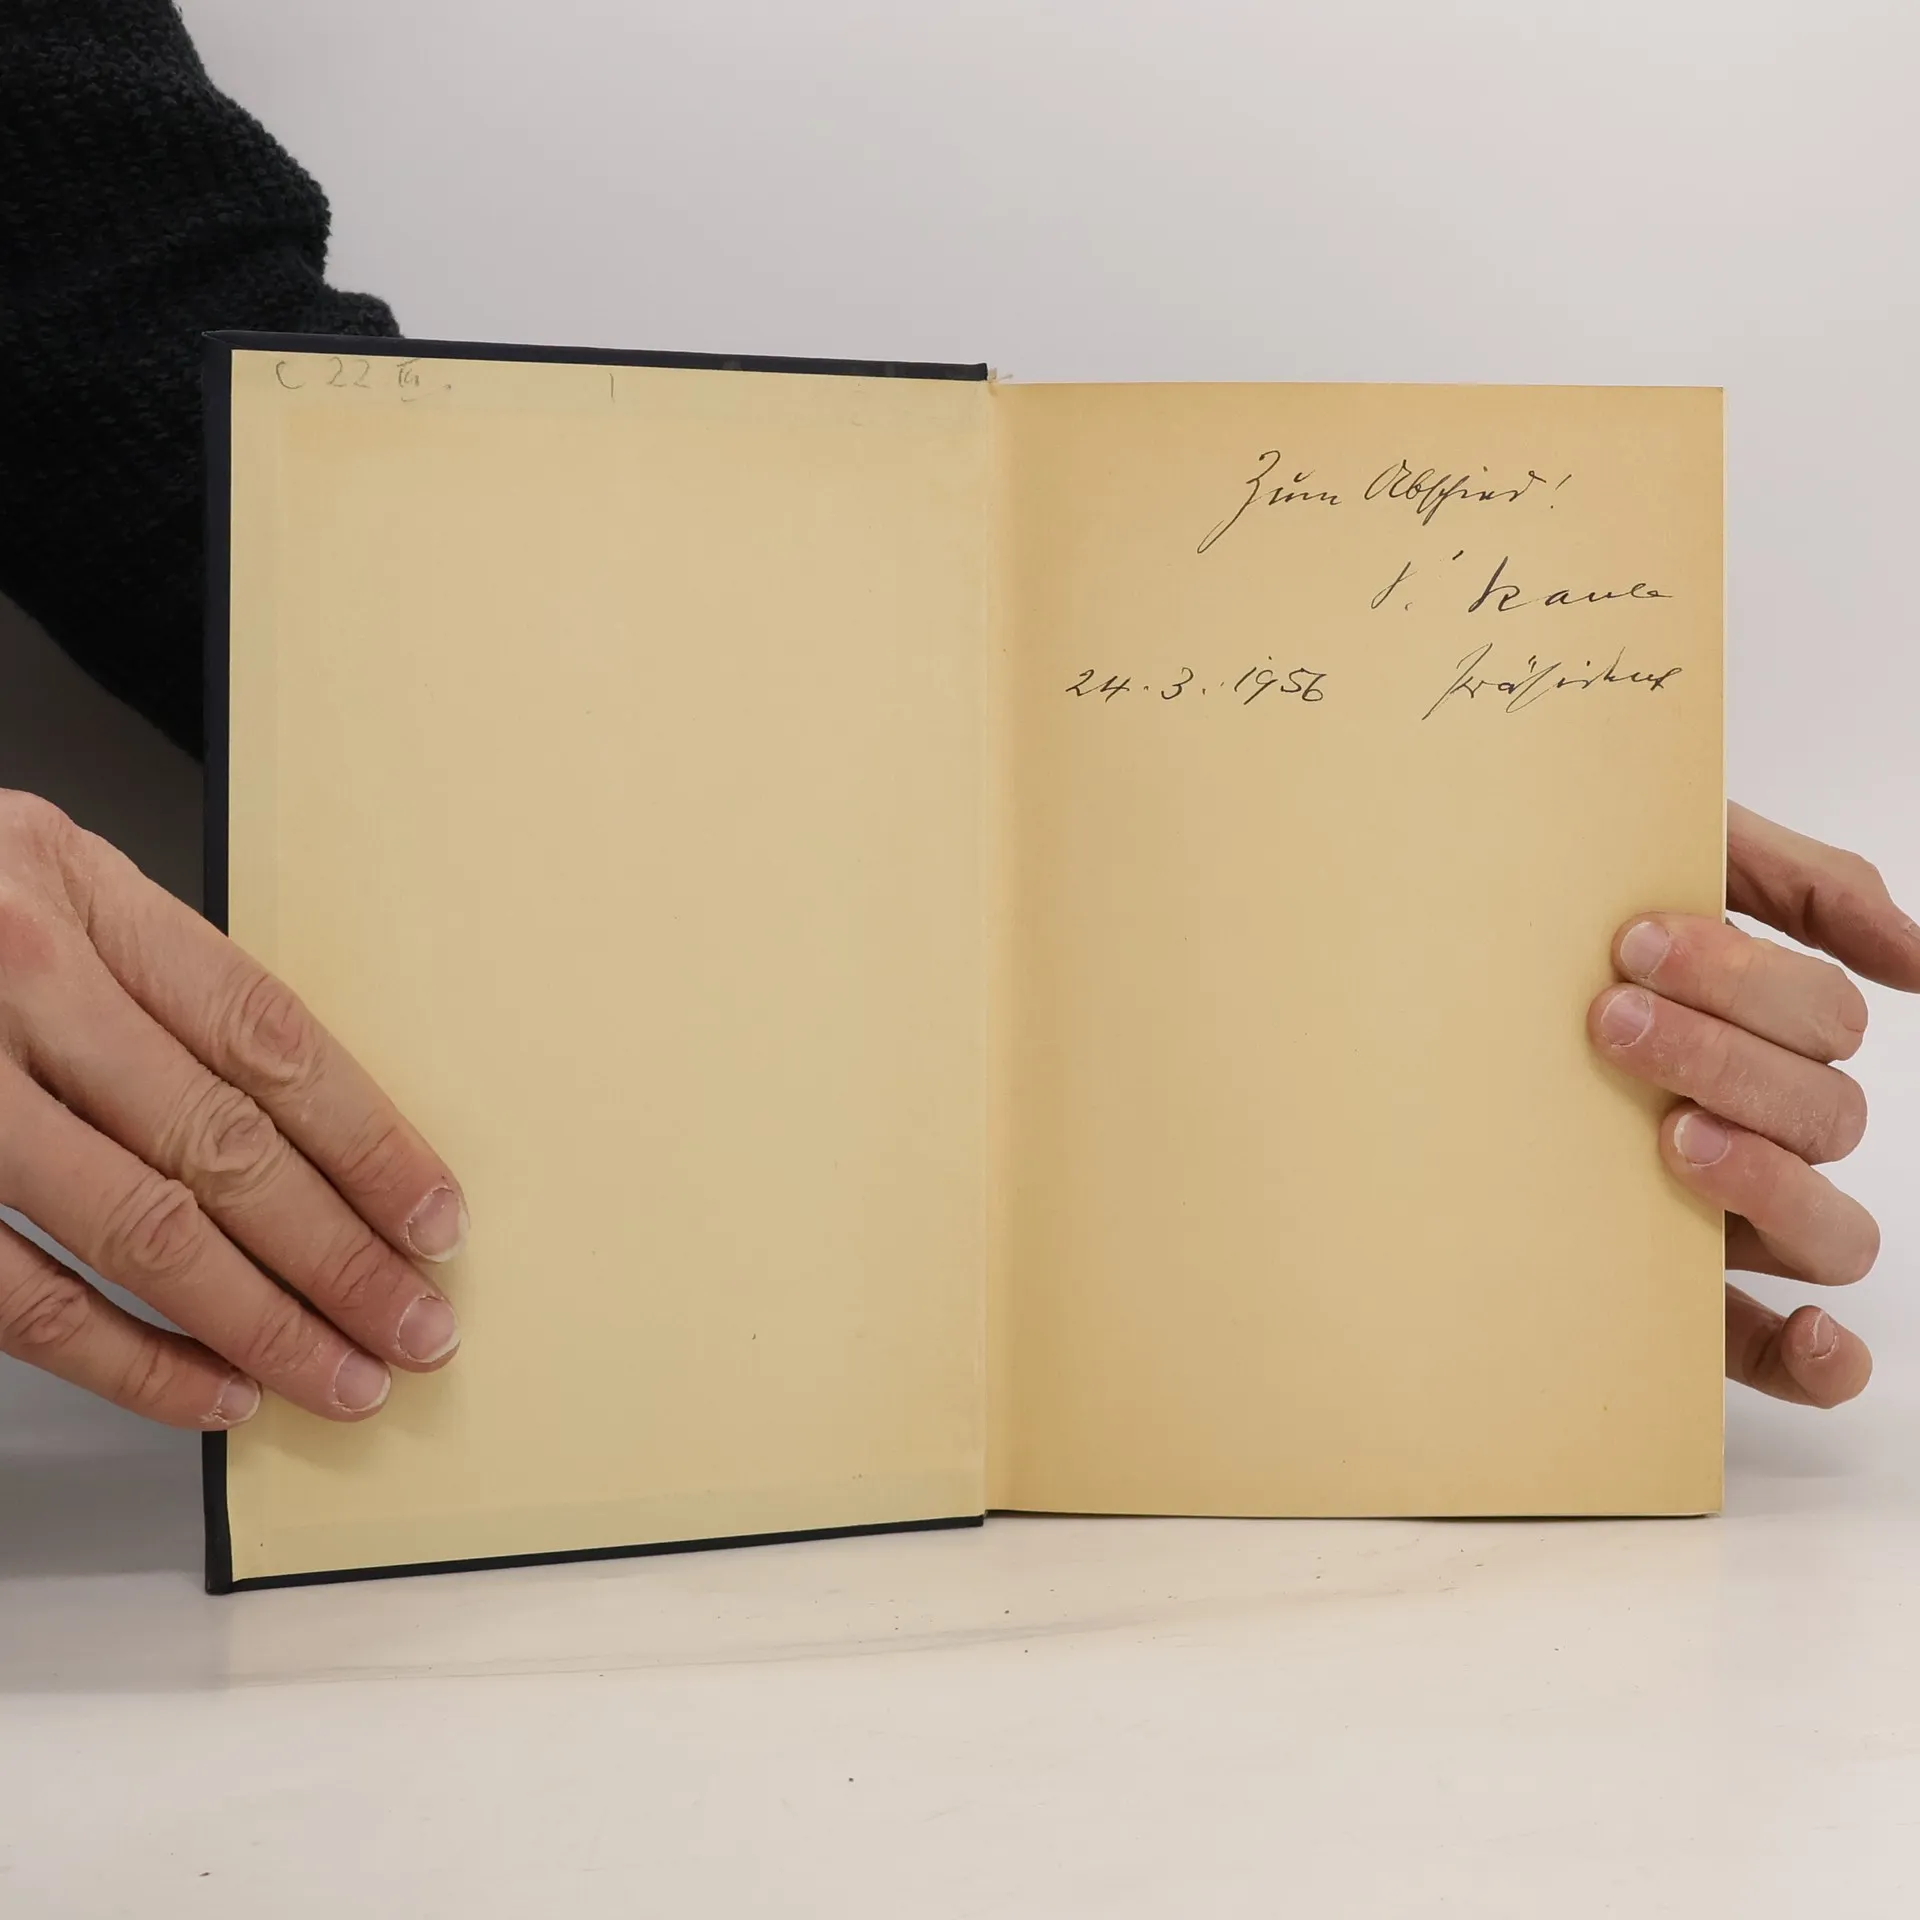 C 22
Zum Abschied!
Kaule
24.3.1956 Präsident